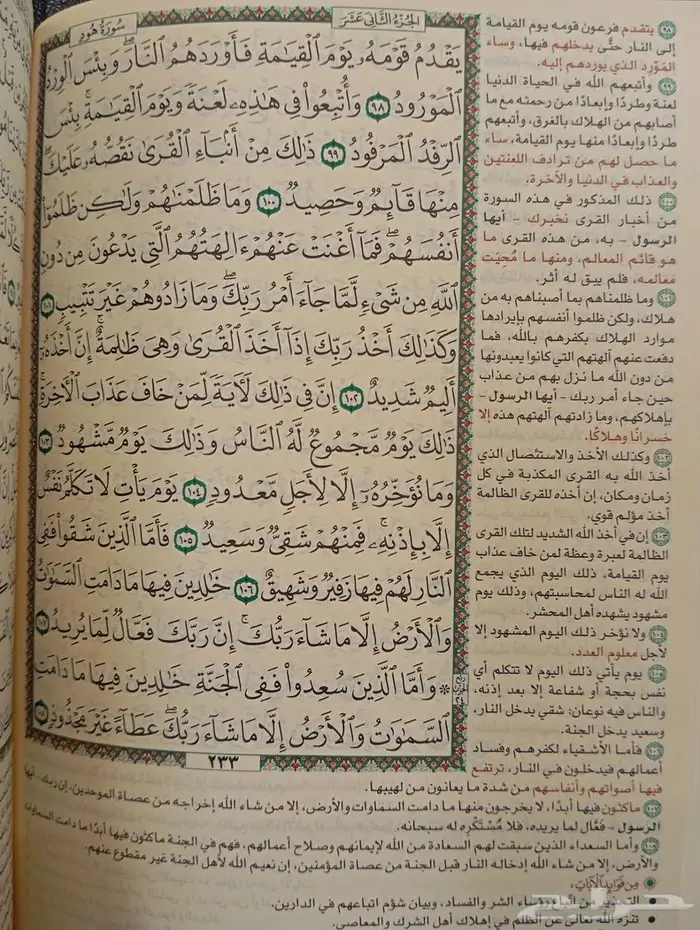 الجزء الثاني عشر
سورة هود
يَقْدُمُ قَوْمَهُۥ يَوْمَ ٱلْقِيَـٰمَةِ فَأَوْرَدَهُمُ ٱلنَّارَۖ وَبِئْسَ ٱلْوِرْدُ
ٱلْمَوْرُودُ ٩٨ وَأُتْبِعُوا۟ فِى هَـٰذِهِۦ لَعْنَةً وَيَوْمَ ٱلْقِيَـٰمَةِۚ بِئْسَ
ٱلرِّفْدُ ٱلْمَرْفُودُ ٩٩ ذَٰلِكَ مِنْ أَنۢبَآءِ ٱلْقُرَىٰ نَقُصُّهُۥ عَلَيْكَۖ
مِنْهَا قَآئِمٌ وَحَصِيدٌ ١٠٠ وَمَا ظَلَمْنَـٰهُمْ وَلَـٰكِن ظَلَمُوٓا۟
أَنفُسَهُمْۖ فَمَآ أَغْنَتْ عَنْهُمْ ءَالِهَتُهُمُ ٱلَّتِى يَدْعُونَ مِن دُونِ
ٱللَّهِ مِن شَىْءٍ لَّمَّا جَآءَ أَمْرُ رَبِّكَۖ وَمَا زَادُوهُمْ غَيْرَ تَتْبِيبٍ ١٠١
وَكَذَٰلِكَ أَخْذُ رَبِّكَ إِذَآ أَخَذَ ٱلْقُرَىٰ وَهِىَ ظَـٰلِمَةٌۚ إِنَّ أَخْذَهُۥٓ
أَلِيمٌ شَدِيدٌ ١٠٢ إِنَّ فِى ذَٰلِكَ لَـَٔايَةً لِّمَنْ خَافَ عَذَابَ ٱلْـَٔاخِرَةِۚ
ذَٰلِكَ يَوْمٌ مَّجْمُوعٌ لَّهُ ٱلنَّاسُ وَذَٰلِكَ يَوْمٌ مَّشْهُودٌ ١٠٣
وَمَا نُؤَخِّرُهُۥٓ إِلَّا لِأَجَلٍ مَّعْدُودٍ ١٠٤ يَوْمَ يَأْتِ لَا تَكَلَّمُ نَفْسٌ
إِلَّا بِإِذْنِهِۦۚ فَمِنْهُمْ شَقِىٌّ وَسَعِيدٌ ١٠٥ فَأَمَّا ٱلَّذِينَ شَقُوا۟ فَفِى
ٱلنَّارِ لَهُمْ فِيهَا زَفِيرٌ وَشَهِيقٌ ١٠٦ خَـٰلِدِينَ فِيهَا مَا دَامَتِ ٱلسَّمَـٰوَٰتُ
وَٱلْأَرْضُ إِلَّا مَا شَآءَ رَبُّكَۚ إِنَّ رَبَّكَ فَعَّالٌ لِّمَا يُرِيدُ ١٠٧
* وَأَمَّا ٱلَّذِينَ سُعِدُوا۟ فَفِى ٱلْجَنَّةِ خَـٰلِدِينَ فِيهَا مَا دَامَتِ
ٱلسَّمَـٰوَٰتُ وَٱلْأَرْضُ إِلَّا مَا شَآءَ رَبُّكَۖ عَطَآءً غَيْرَ مَجْذُوذٍ ١٠٨
٢٣٣
٩٨ يتقدم فرعون قومه يوم القيامة
إلى النار حتَّى يدخلهم فيها، وساء
المَوْرد الذي يوردهم إليه.
٩٩ وأتبعهم الله في الحياة الدنيا
لعنة وطردًا وإبعادًا من رحمته مع ما
أصابهم من الهلاك بالغرق، وأتبعهم
طردًا وإبعادًا منها يوم القيامة، ساء
ما حصل لهم من ترادف اللعنتين
والعذاب في الدنيا والآخرة.
١٠٠ ذلك المذكور في هذه السورة
من أخبار القرى نخبرك - أيها
الرسول - به، من هذه القرى ما
هو قائم المعالم، ومنها ما مُحِيَت
معالمه، فلم يبق له أثر.
١٠١ وما ظلمناهم بما أصبناهم به من
هلاك، ولكن ظلموا أنفسهم بإيرادها
موارد الهلاك بكفرهم بالله، فما
دفعت عنهم آلهتهم التي كانوا يعبدونها
من دون الله ما نزل بهم من عذاب
حين جاء أمر ربك - أيها الرسول -
بإهلاكهم، وما زادتهم آلهتهم هذه إلا
خسرانًا وهلاكًا.
١٠٢ وكذلك الأخذ والاستئصال الذي
أخذ الله به القرى المكذبة في كل
زمان ومكان، إن أخذه للقرى الظالمة
أخذ مؤلم قوي.
١٠٣ إن في أخذ الله الشديد لتلك القرى
الظالمة لعبرة وعظة لمن خاف عذاب
يوم القيامة، ذلك اليوم الذي يجمع
الله له الناس لمحاسبتهم، وذلك يوم
مشهود يشهده أهل المحشر.
١٠٤ ولا نؤخر ذلك اليوم المشهود إلا
لأجل معلوم العدد.
١٠٥ يوم يأتي ذلك اليوم لا تتكلم أي
نفس بحجة أو شفاعة إلا بعد إذنه،
والناس فيه نوعان: شقي يدخل النار،
وسعيد يدخل الجنة.
١٠٦ فأما الأشقياء لكفرهم وفساد
أعمالهم فيدخلون في النار، ترتفع
فيها أصواتهم وأنفاسهم من شدة ما يعانون من لهيبها.
١٠٧ ماكثون فيها أبدًا، لا يخرجون منها ما دامت السماوات والأرض، إلا من شاء الله إخراجه من عصاة الموحدين، إن ربك - أيها
الرسول - فعَّال لما يريده، فلا مُسْتَكْرِه له سبحانه.
١٠٨ وأما السعداء الذين سبقت لهم السعادة من الله لإيمانهم وصلاح أعمالهم، فهم في الجنة ماكثون فيها أبدًا ما دامت السماوات
والأرض، إلا من شاء الله إدخاله النار قبل الجنة من عصاة المؤمنين، إن نعيم الله لأهل الجنة غير مقطوع عنهم.
من فوائد الآيات
• التحذير من اتباع رؤساء الشر والفساد، وبيان شؤم اتباعهم في الدارين.
• تنزه الله تعالى عن الظلم في إهلاك أهل الشرك والمعاصي.